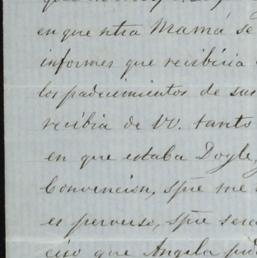 en que ntra Mamá se
informes que recibiria
los padecimientos de sus
recibia de VV. tanto
en que estaba Doyle,
Convencion, spre me
es perverso, spre será
que Angela